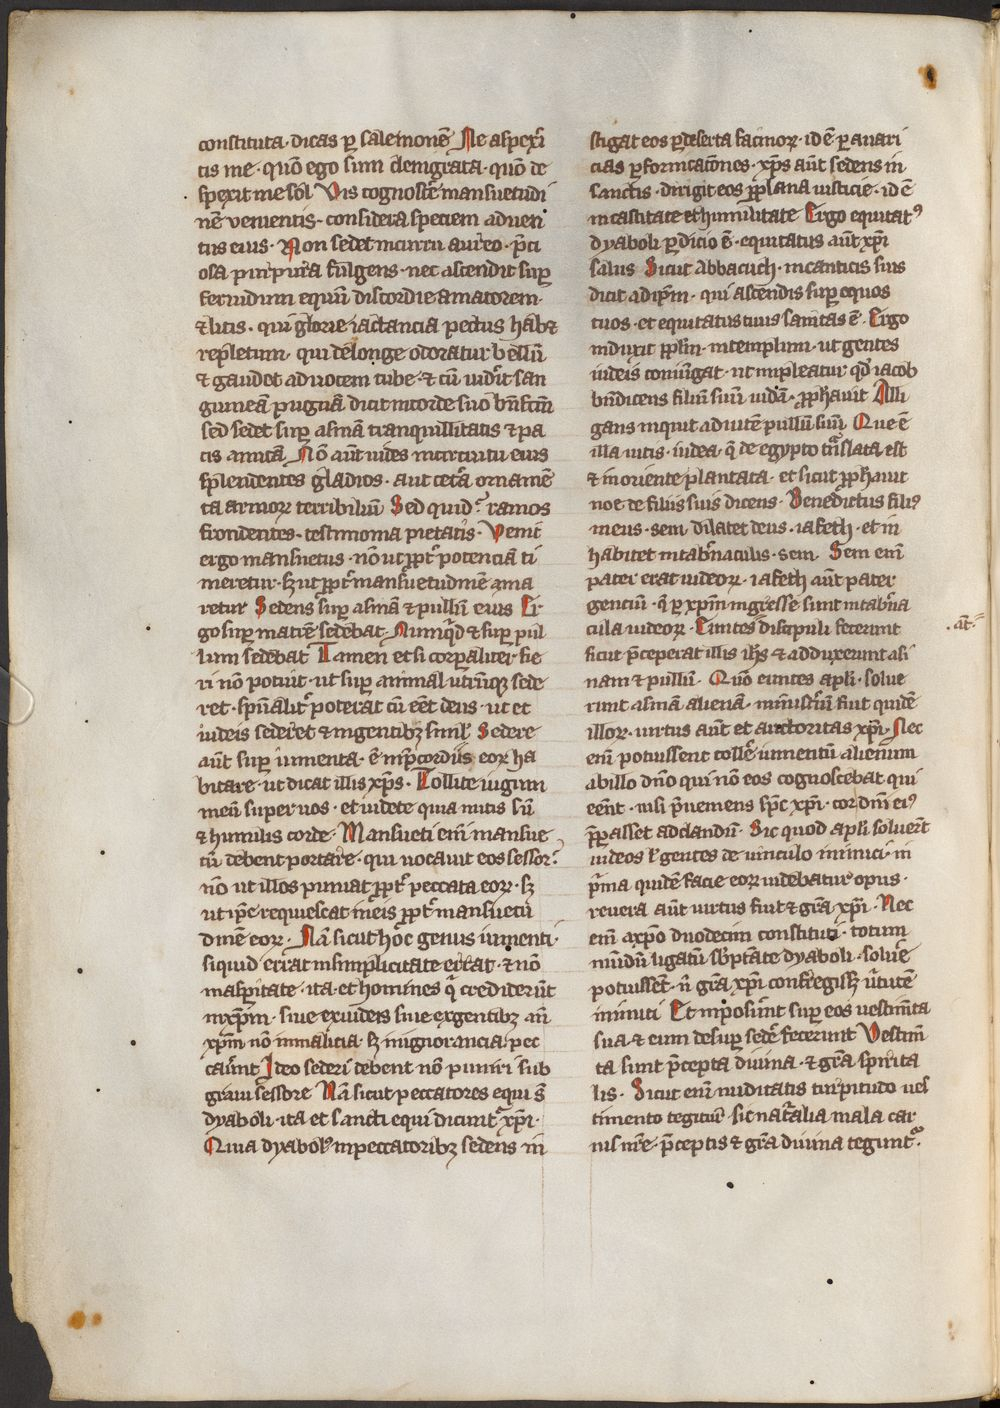 constituta · dicas ꝑ salemonē Ne aspexͥi
tis me · quō ego sum denigrata · quō de
spexit me sōl Vis cognoscͤe mansuetudi
nē venientis · considera speciem aduen
tus eius · Non sedet in curru aureo · p̄ci
osa purpura fulgens · nec ascendit suꝑ
feruidum equū discordie amatorem ·
⁊ litis · qui glorie iactancia pectus hab⁊
repletum · qui de longe odoratur bellū
⁊ gaudet ad uocem tube · ⁊ cū uidͥit san
guineā pugnā dicit in corde suo bn̄ fc̄m
sed sedet suꝑ asinā tranquillitatis ⁊ pa
cis amicā Nō aūt uides in circuitu eius
splendentes gladios · aut cetͣa orname
ta armoꝝ terribiliū Sed quid · ramos
frondentes · testimonia pietatis · Venit
ergo mansuetus · nō ut ꝓpt̄ potenciā ti
meretur · sꝫ ut ꝓpt̄ mansuetudinē ama
retur Sedens suꝑ asinā ⁊ pullū eius Er
go suꝑ matrē sedebat · Nunqͥd ⁊ suꝑ pul
lum sedebat Tamen etsi corꝑaliter fie
ri nō potuit · ut suꝑ animal utrūqꝫ sede
ret · spūalitͬ poterat cū eēt deus · ut et
iudeis sederet ⁊ in gentibꝫ simlꝰ Sedere
aūt suꝑ iumenta · ē in p̄cordiis eoꝝ ha
bitare · ut dicat illis xp̄s · Tollite iugum
meū super uos · et uidete quia mitis sū
⁊ humilis corde · Mansueti eni mansue
tū debent portare · qui uocauit eos sessor ·
nō ut illos puniat ꝓpt̄ peccata eoꝝ · sꝫ
ut ip̄e requiescat in eis ꝓpt̄ mansuetu
dinē eoꝝ · Nā sicut hoc genus iumenti ·
si quid errat in simplicitate errat · ⁊ nō
in asꝑitate · ita · et homines qͥ crediderūt
in xp̄m · siue ex iudeis siue ex gentibꝫ an̄
xp̄m nō in malicia · sꝫ in ignorancia pec
caūnt Ideo sederi debent nō puniri sub
graui sessore Nā sicut peccatores equi s̄
dyaboli · ita et sancti equi dicuntͬ xp̄i ·
Quia dyabolꝰ in peccatoribꝫ sedens in
stigat eos ꝑ deserta facinoꝝ · id ē ꝑ auari
cias ꝑ fornicatōnes · xp̄s aūt sedens in
sanctis · dirigit eos ꝑ plana iusticie · id ē
in castitate et humilitate Ergo equitatꝰ
dyaboli ꝑdicio ē · equitatus aūt xp̄i
salus Sicut Abbacuch · in canticis suis
dicit ad ip̄m · qui ascendis suꝑ equos
tuos · et equitatus tuus sanitas ē · Ergo
induxit pplm̄ · in templum · ut gentes
iudeis coniūgat · ut impleatur qd̄ iacob
bn̄dicens filiū suū iudā · ꝓphauit Alli
gans inquit ad uitē pullū suū Que ē
illa uitis · iudea · q̄ de egypto trāslata est
⁊ in oriente plantata · et sicut ꝓphauit
noe de filiis suis dicens · Benedictus filiꝰ
meus · sem dilatet deus · iafeth · et in
habitet in tabnͣaculis · sem · Sem eni
pater erat iudeoꝝ · iafeth aūt pater
genciū · q̄ ꝑ xp̄m ingresse sunt in tabnͣa
cula iudeoꝝ · Euntes discipuli fecerunt
aūt ·
sicut p̄ceperat illis ih̄s ⁊ adduxerunt asi
nam ⁊ pullū · Quō euntes apl̄i · solue
runt asinā alienā · ministͥiū fuit quidē
illoꝝ · uirtus aūt et auctoritas xp̄i · Nec
enī potuissent tollē iumentū alienum
ab illo dn̄o qui nō eos cognoscebat qui
eēnt · nisi p̄ueniens spc̄ xp̄i · cor dn̄i eiꝰ
p̄ꝑasset ad dandū · Sic quod apl̄i soluert̄
iudeos ⁊ gentes de uinculo inimici · in
pͥma quidē facie eoꝝ uidebatur opus ·
reuera aūt uirtus fuit ⁊ grā xp̄i · Nec
enī a xp̄o duodecim constituti · totum
mūdū ligatū sb̄ ptāte dyaboli · soluē
potuissēt · n̄ grā xp̄i confregissꝫ uͥtutē
inimici Et inposuͤnt suꝑ eos uestimͭa
sua · ⁊ eum desuꝑ sedē fecerunt Vestim̄
ta sunt p̄cepta diuina · ⁊ grā spūita
lis · Sicut enī nuditatis turpitudo ues
timento tegitur · sic natͣalia mala car
nis nrē · p̄ceptis ⁊ grā diuina teguntͬ ·